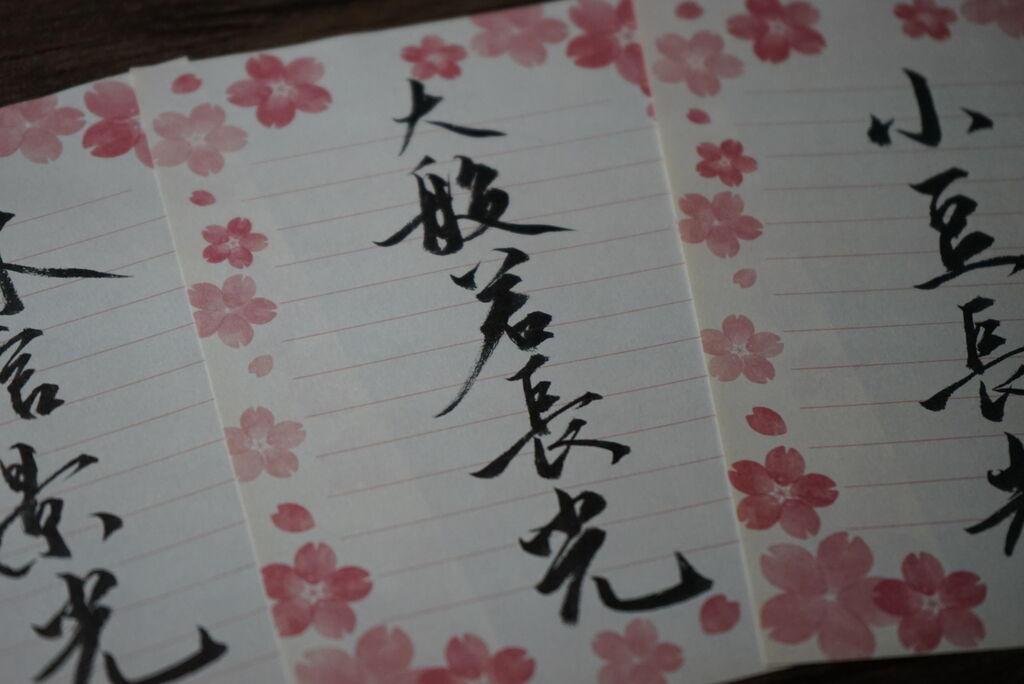 小豆長光
大般若長光
景光